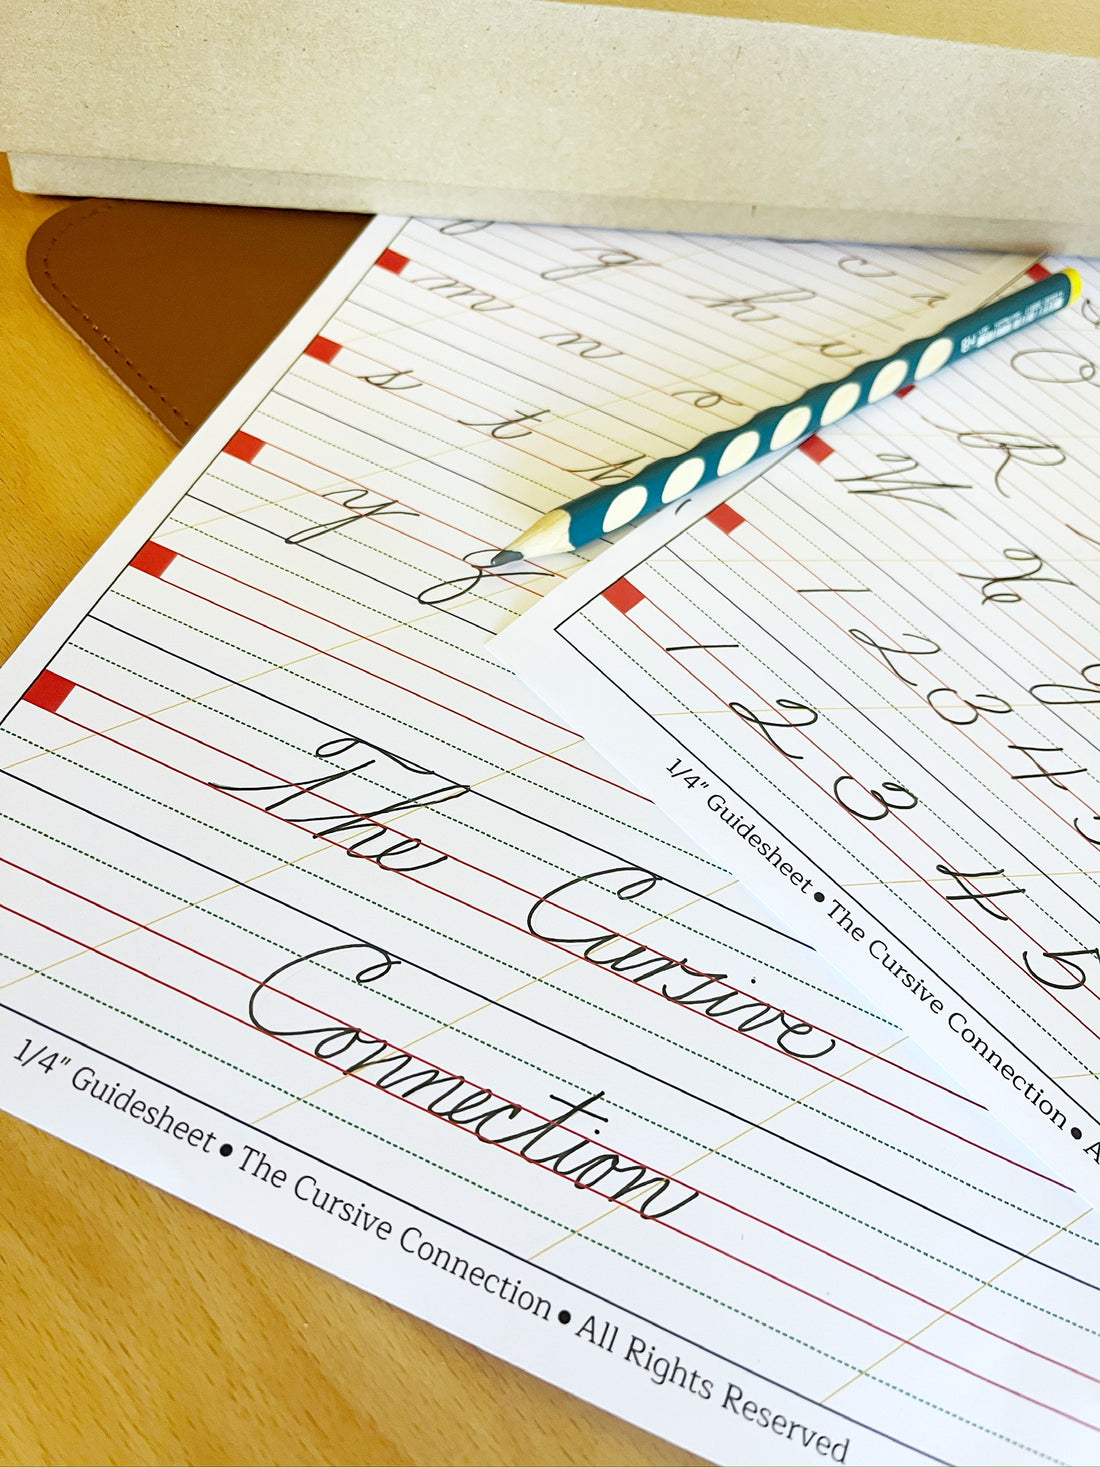 g h i
m n o
s t
y z
The Cursive
Connection
1/4" Guidesheet • The Cursive Connection • All Rights Reserved
O
R
W X y
1 2 3 4
1 2 3 4 5
1/4" Guidesheet • The Cursive Connection • A
HB